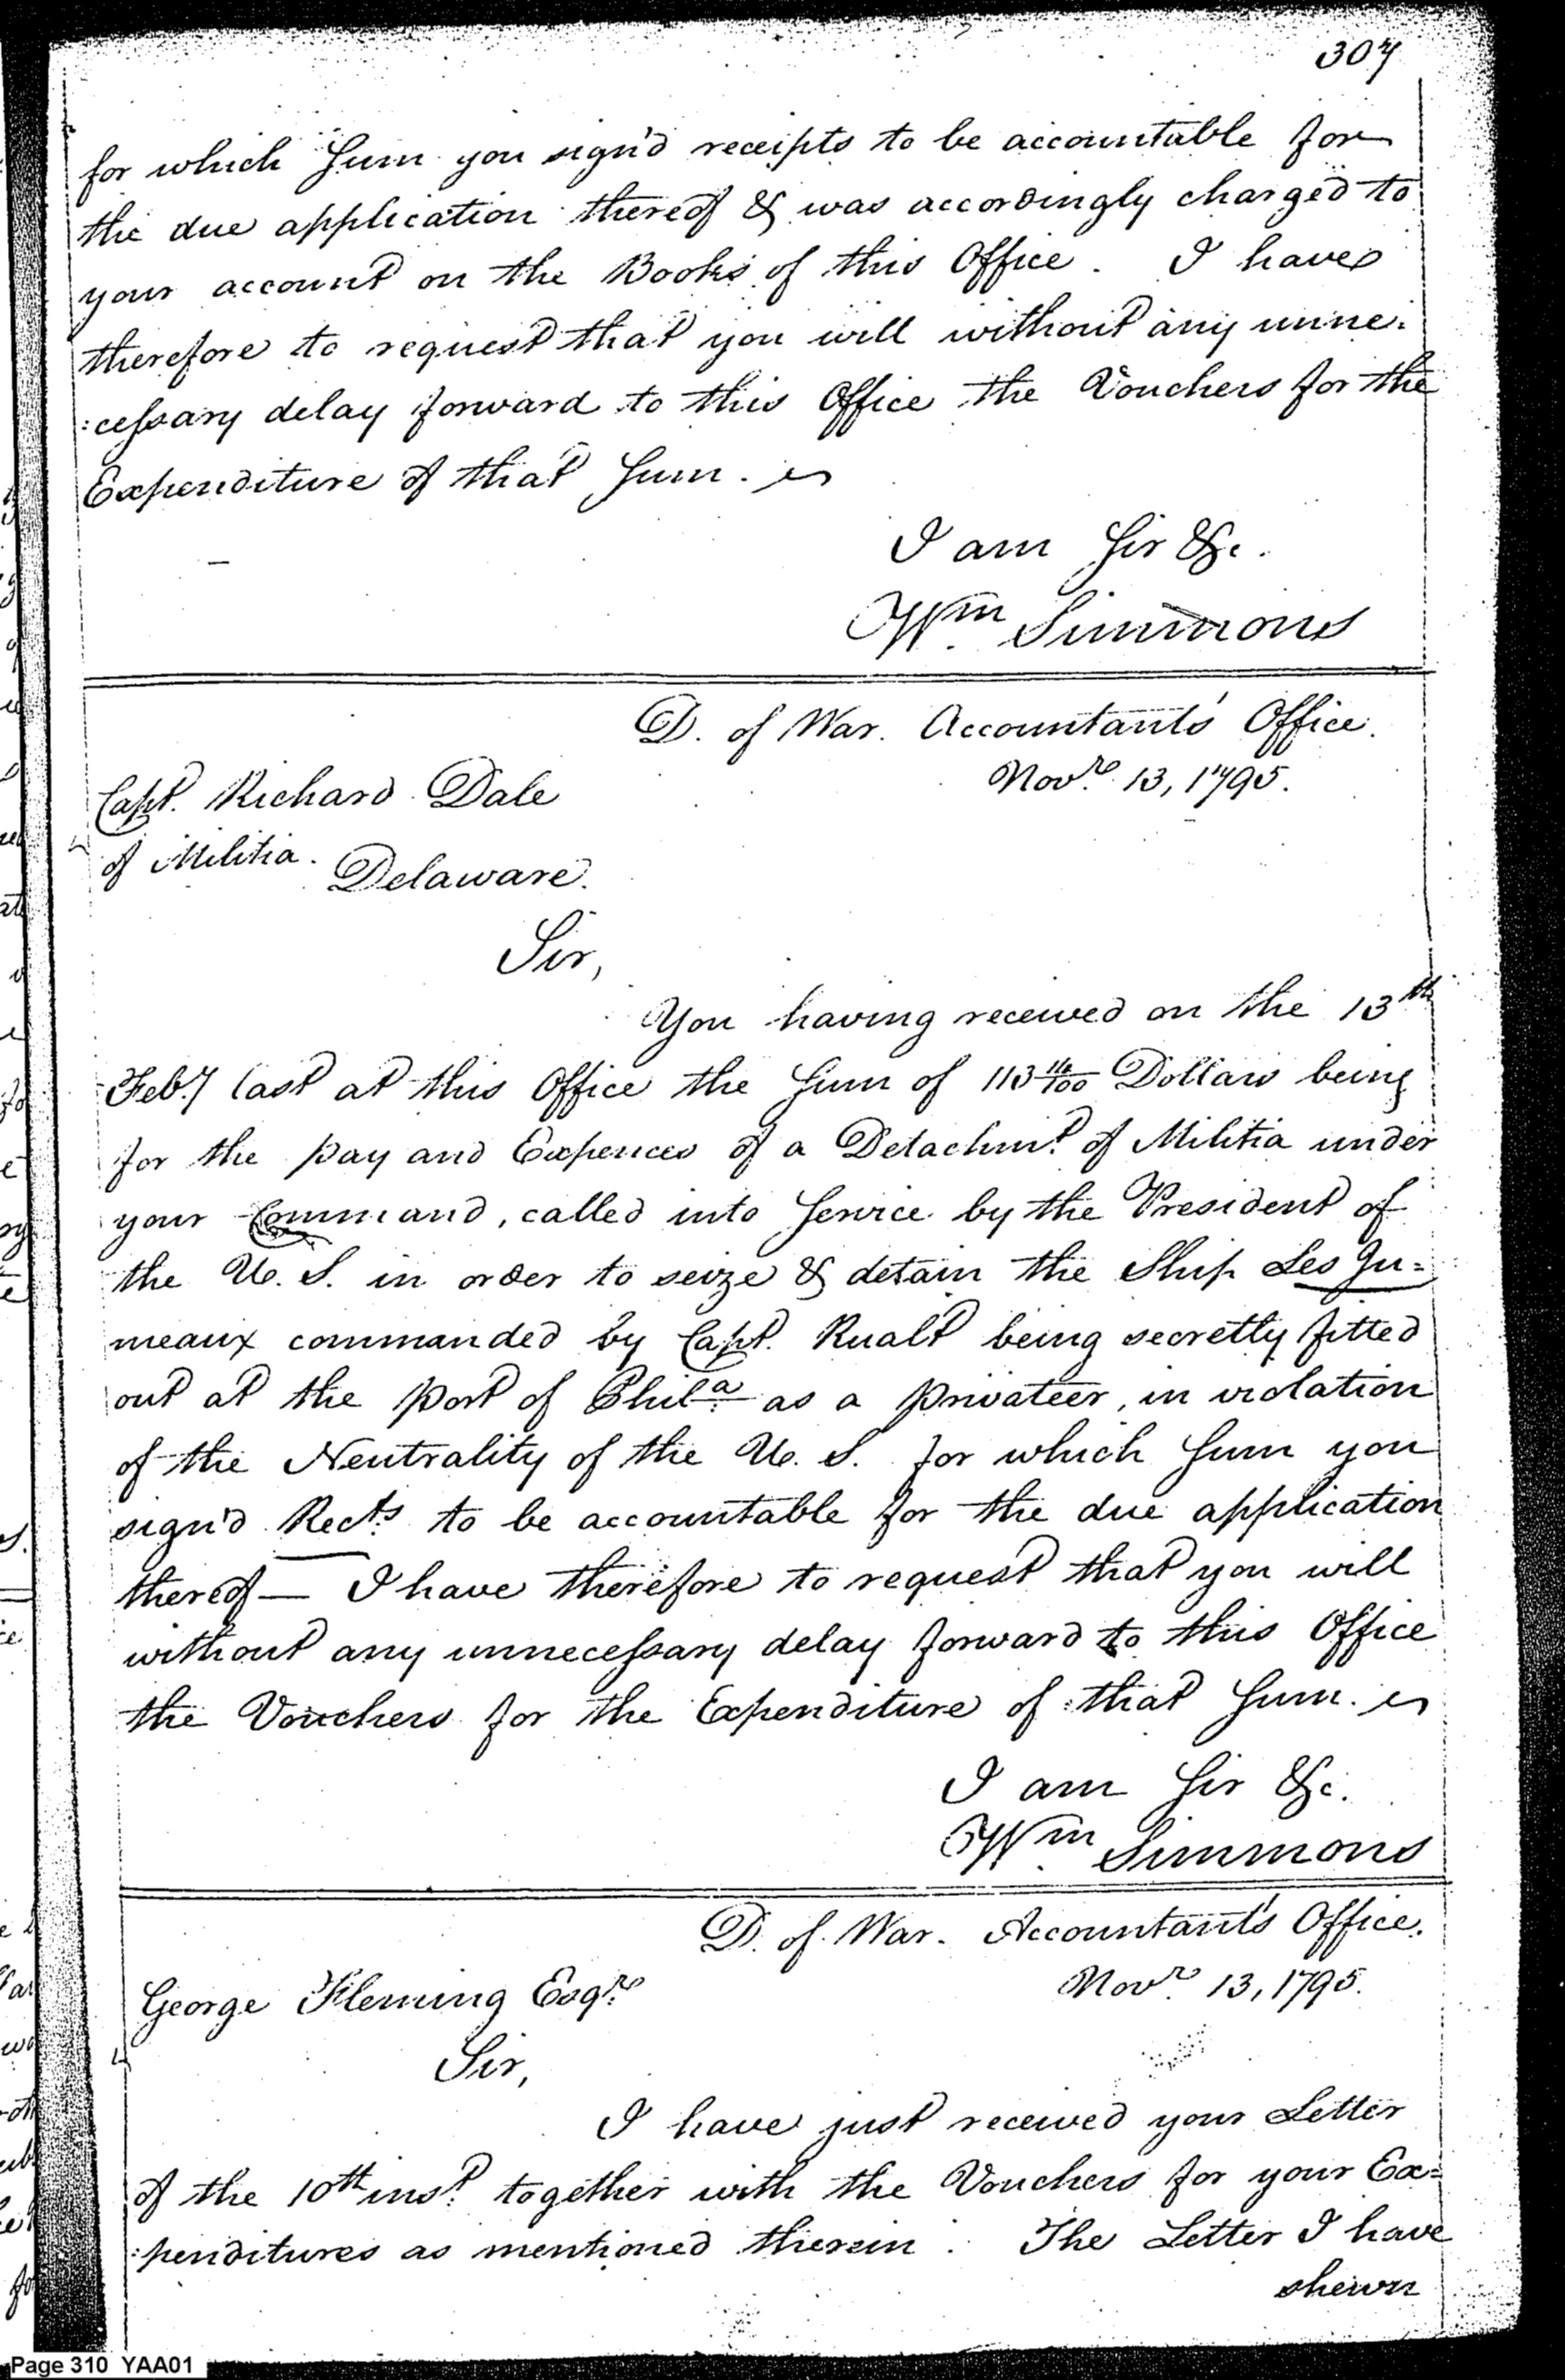 307
for which Sum you sign'd receipts to be accountable for
the due application thereof & was accordingly charged to
your account on the Books of this Office. I have
therefore to request that you will without any unne-
:cessary delay forward to this Office the Vouchers for the
Expenditure of that Sum.
I am Sir &c.
Wm Simmons
D. of War. Accountant's Office.
Novr. 13, 1795.
Capt. Richard Dale
of Militia.
Delaware.
Sir,
You having received on the 13th
Feby last at this Office the Sum of 113 /100 Dollars being
for the pay and Expences of a Detachmt. of Militia under
your Command, called into Service by the President of
the U. S. in order to seize & detain the Ship Les Ju=
meaux commanded by Capt. Rualt being secretly fitted
out at the port of Phila. as a privateer, in violation
of the Neutrality of the U. S. for which Sum you
sign'd Rects. to be accountable for the due application
thereof — I have therefore to request that you will
without any unnecessary delay forward to this Office
the Vouchers for the Expenditure of that Sum.
I am Sir &c.
Wm. Simmons
D. of War. Accountant's Office.
Novr. 13, 1795.
George Fleming Esqr.
Sir,
I have just received your Letter
of the 10th inst. together with the Vouchers for your Ex=
:penditures as mentioned therein. The Letter I have
shewn
Page 310 YAA01